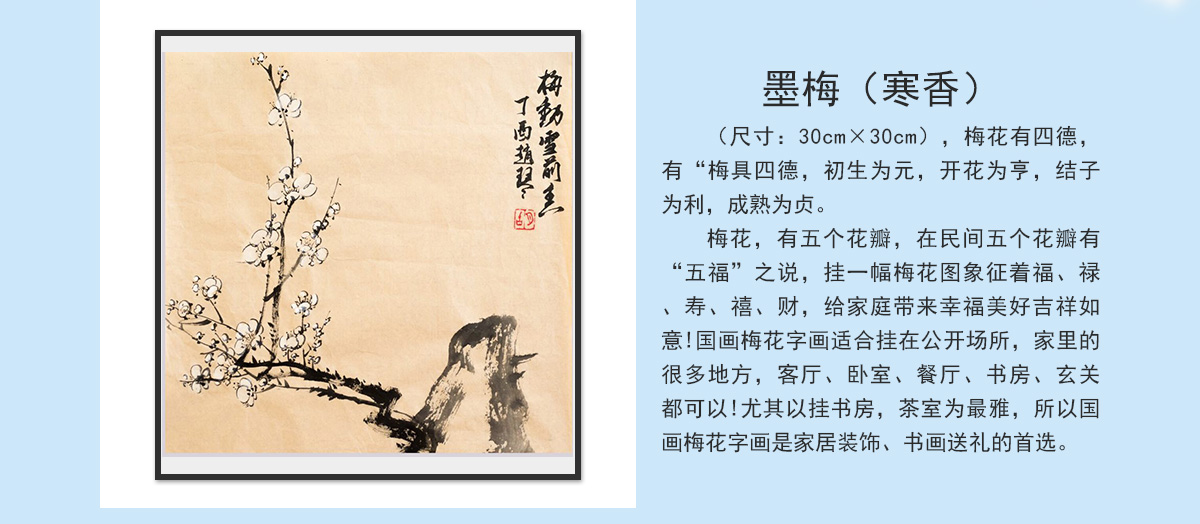 梅動雪前香
丁酉趙琴
墨梅（寒香）
（尺寸：30cm×30cm），梅花有四德，
有“梅具四德，初生为元，开花为亨，结子
为利，成熟为贞。
梅花，有五个花瓣，在民间五个花瓣有
“五福”之说，挂一幅梅花图象征着福、禄
、寿、禧、财，给家庭带来幸福美好吉祥如
意!国画梅花字画适合挂在公开场所，家里的
很多地方，客厅、卧室、餐厅、书房、玄关
都可以!尤其以挂书房，茶室为最雅，所以国
画梅花字画是家居装饰、书画送礼的首选。